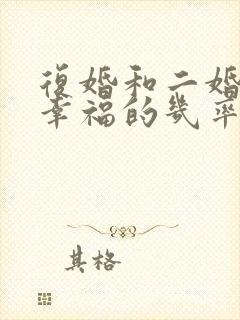 復婚和二婚
幸福的幾率
其格